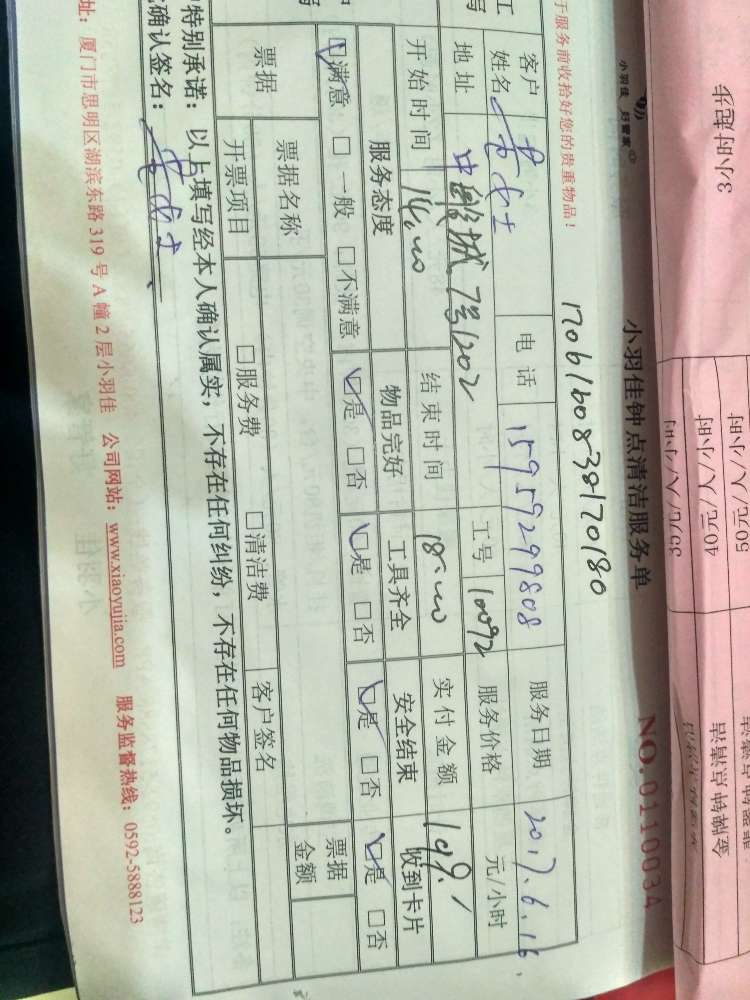 小羽佳 好管家
小羽佳钟点清洁服务单
NO.0110034
1706160838170180
于服务前收拾好您的贵重物品！
客户
姓名
电话 15959299808 服务日期 2017.6.16
地址 7号1202 工号 10092 服务价格 元/小时
开始时间 14:00 结束时间 18:00 实付金额 149.
服务态度 物品完好 工具齐全 安全结束 收到卡片
☑满意 □一般 □不满意 ☑是 □否 ☑是 □否 ☑是 □否 ☑是 □否
票据 票据名称 票据
金额
开票项目 □服务费 □清洁费 客户签名
特别承诺：以上填写经本人确认属实，不存在任何纠纷，不存在任何物品损坏。
确认签名：
址：厦门市思明区湖滨东路319号A幢2层小羽佳 公司网站：www.xiaoyujia.com 服务监督热线：0592-5888123
3小时起步
50元/人/小时
40元/人/小时
35元/人/小时